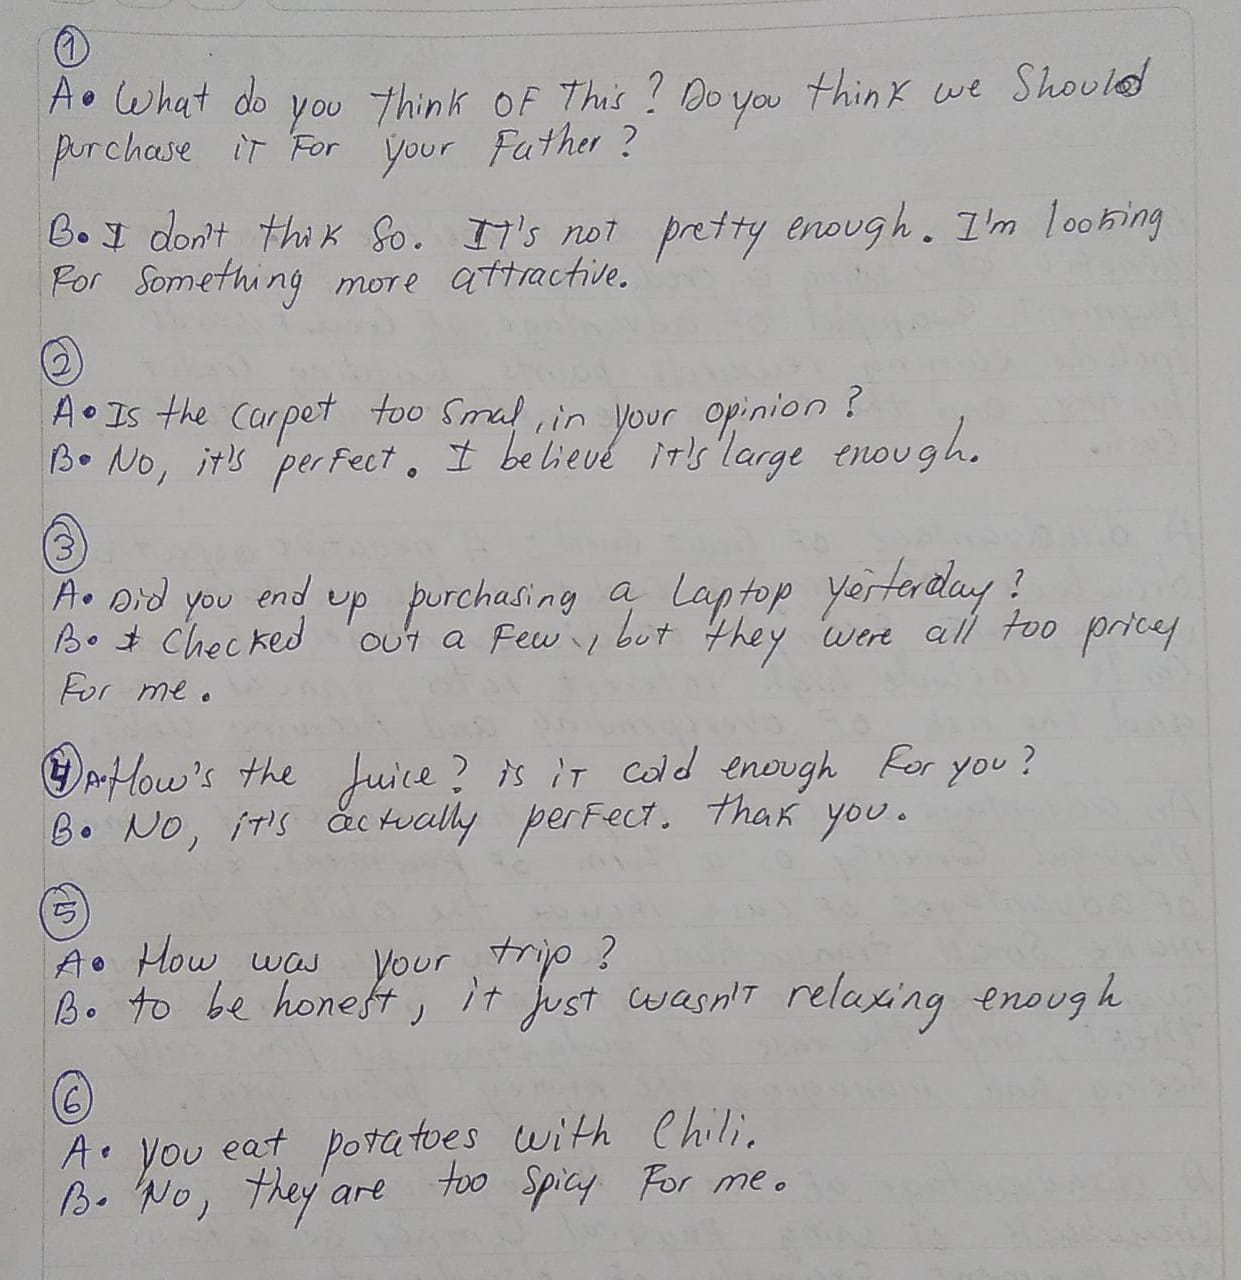 1
A. What do you think OF This? Do you think we Should
purchase it For your Father?
B. I don't thik So. IT's not pretty enough. I'm looking
For Something more attractive.
2
A. Is the carpet too Smal, in your opinion?
B. No, it's perfect. I believe it's large enough.
3
A. Did you end up purchasing a Laptop yesterday?
B. I Checked out a Few, but they were all too pricey
For me.
4 A. How's the juice? is iT cold enough For you?
B. NO, iT's actually perFect. thak you.
5
A. How was your trip?
B. to be honest, it just wasn'T relaxing enough
6
A. you eat potatoes with Chili.
B. No, they are too Spicy For me.